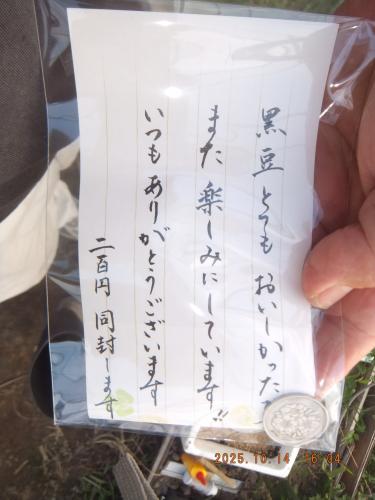 黒豆とてもおいしかった
また楽しみにしています!!
いつもありがとうございます
二百円 同封します
2025.10.14 16:44